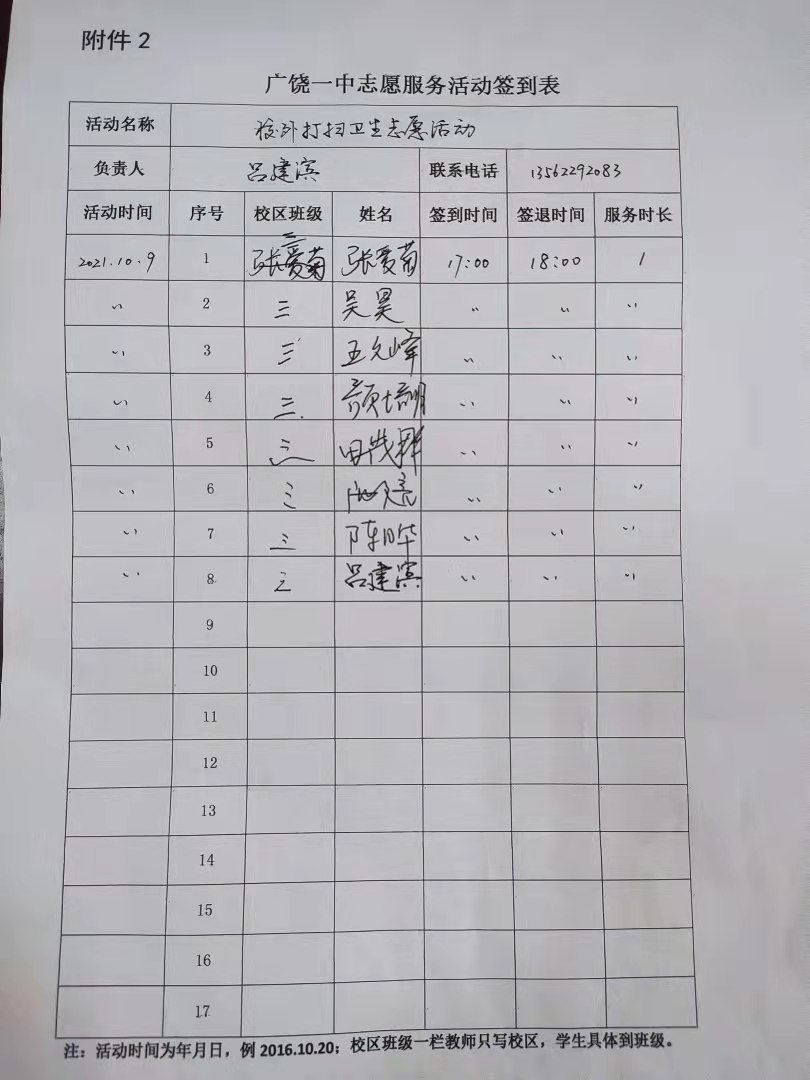 附件 2
广饶一中志愿服务活动签到表
活动名称 校外打扫卫生志愿活动
负责人 吕建滨 联系电话 13562292083
活动时间 序号 校区班级 姓名 签到时间 签退时间 服务时长
2021.10.9 1 三 张爱菊 17:00 18:00 1
〃 2 三 吴昊 〃 〃 〃
〃 3 三 王允峰 〃 〃 〃
〃 4 三 颜培明 〃 〃 〃
〃 5 三 田茂群 〃 〃 〃
〃 6 三 〃 〃 〃
〃 7 三 陈晔 〃 〃 〃
〃 8 三 吕建滨 〃 〃 〃
9
10
11
12
13
14
15
16
17
注：活动时间为年月日，例 2016.10.20；校区班级一栏教师只写校区，学生具体到班级。